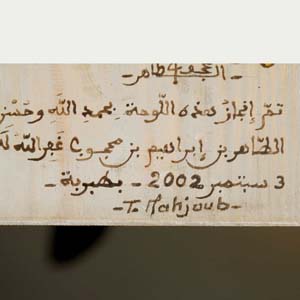 تم إنجاز هذه اللوحة بحمد الله وحسن
الطاهر بن إبراهيم بن محجوب غفر الله له
3 سبتمبر 2002 - بهبرية -
- T. Mahjoub -